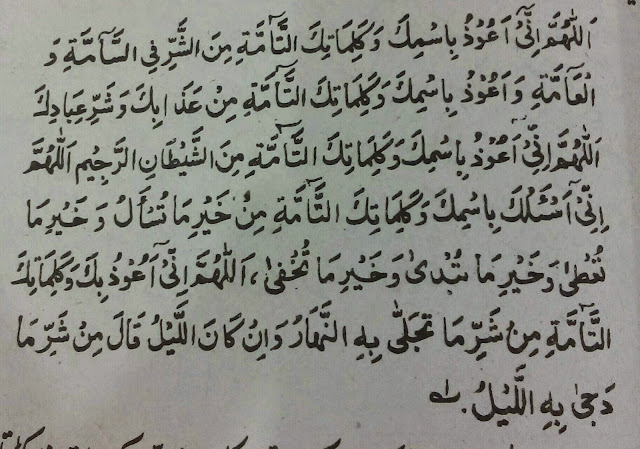 اَللّٰهُمَّ اِنِّیْۤ اَعُوْذُ بِاسْمِكَ وَكَلِمَاتِكَ التَّآمَّةِ مِنَ الشَّرِّ فِی السَّآمَّةِ وَ
الْعَآمَّةِ وَاَعُوْذُ بِاسْمِكَ وَكَلِمَاتِكَ التَّآمَّةِ مِنْ عَذَابِكَ وَشَرِّ عِبَادِكَ
اَللّٰهُمَّ اِنِّیْۤ اَعُوْذُ بِاسْمِكَ وَكَلِمَاتِكَ التَّآمَّةِ مِنَ الشَّيْطَانِ الرَّجِيْمِ اَللّٰهُمَّ
اِنِّیْۤ اَسْئَلُكَ بِاسْمِكَ وَكَلِمَاتِكَ التَّآمَّةِ مِنْ خَيْرِ مَا تُسْأَلُ وَخَيْرِ مَا
تُعْطٰی وَخَيْرِ مَا تُبْدیٰ وَخَيْرِ مَا تُخْفیٰ، اَللّٰهُمَّ اِنِّیْۤ اَعُوْذُ بِكَ وَكَلِمَاتِكَ
التَّآمَّةِ مِنْ شَرِّ مَا تَجَلّٰی بِهِ النَّهَارُ وَاِنْ كَانَ اللَّيْلُ قَالَ مِنْ شَرِّ مَا
دَجیٰ بِهِ اللَّيْلُ.